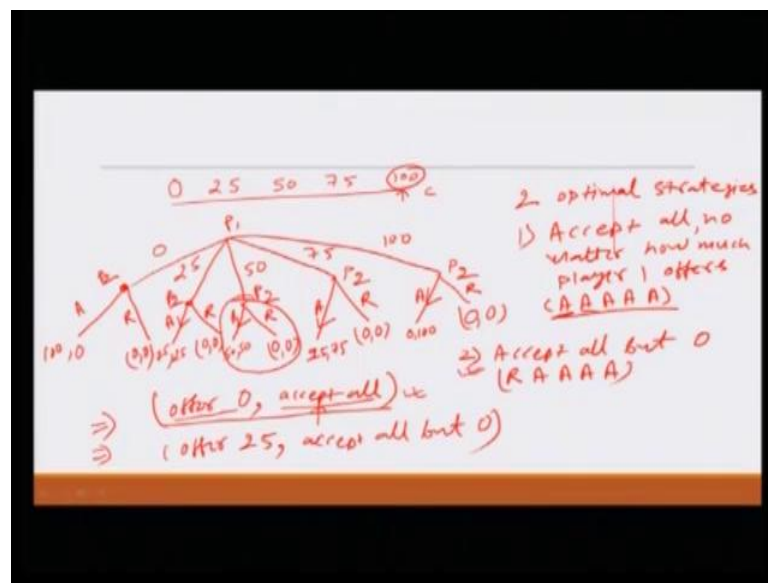 0 25 50 75 100
c
P1
0 25 50 75 100
P2 P2 P2 P2 P2
A R A R A R A R A R
100,0 (0,0) 75,25 (0,0) 50,50 (0,0) 25,75 (0,0) 0,100 (0,0)
⇒ (offer 0, accept all)
⇒ (offer 25, accept all but 0)
2 optimal strategies
1) Accept all, no
matter how much
player 1 offers
(A A A A A)
2) Accept all but 0
(R A A A A)